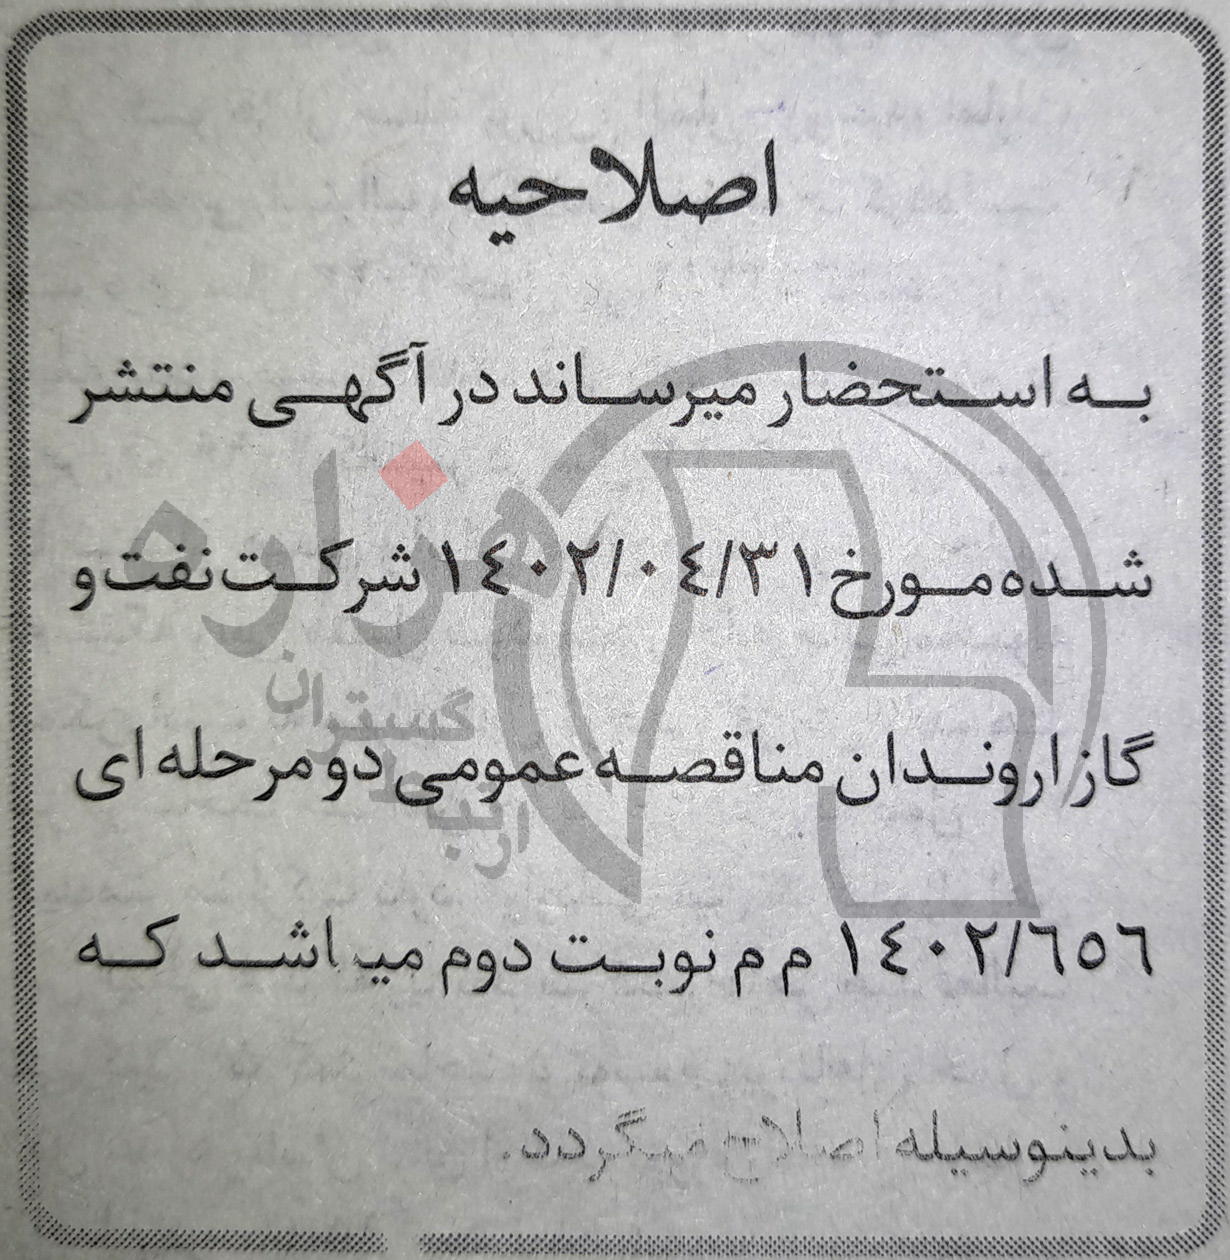 اصلاحیه
به استحضار میرساند در آگهی منتشر
شده مورخ ١٤٠٢/٠٤/٣١ شرکت نفت و
گاز اروندان مناقصه عمومی دو مرحله ای
١٤٠٢/٦٥٦ م م نوبت دوم میباشد که
بدینوسیله اصلاح میگردد.
هزاره
گستران